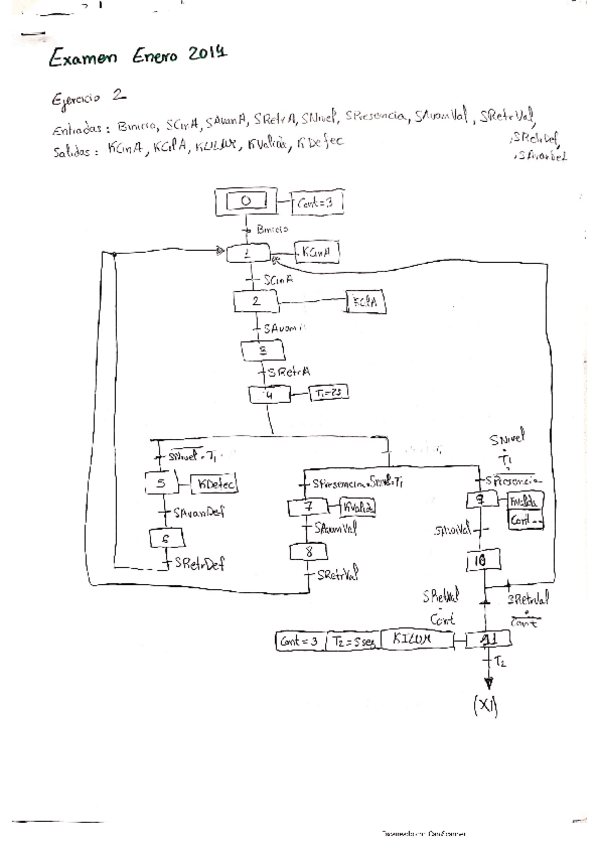 Examen Enero 2014
Ejercicio 2
Entradas: Binicio, SCinA, SAvanA, SRetrA, SNivel, SPresencia, SAvanVal, SRetrVal,
,SRetrDef,
,SAvanDef
Salidas: KCinA, KCilA, KValida, KDefec
0 Cont=3
Binicio
1 KCinA
SCinA
2 KCilA
SAvanA
3
SRetrA
4 T1=2s
SNivel · T1
5 KDefec
SAvanDef
6
SRetrDef
SPresencia · SNivel · T1
7 KValida
SAvanVal
8
SRetrVal
SNivel
·
T1
·
SPresencia
9 KValida
Cont--
SAvaVal
10
SRetVal
·
Cont
SRetrVal
·
Cont
Cont=3 T2=5seg 11
T2
(X1)
Escaneado con CamScanner